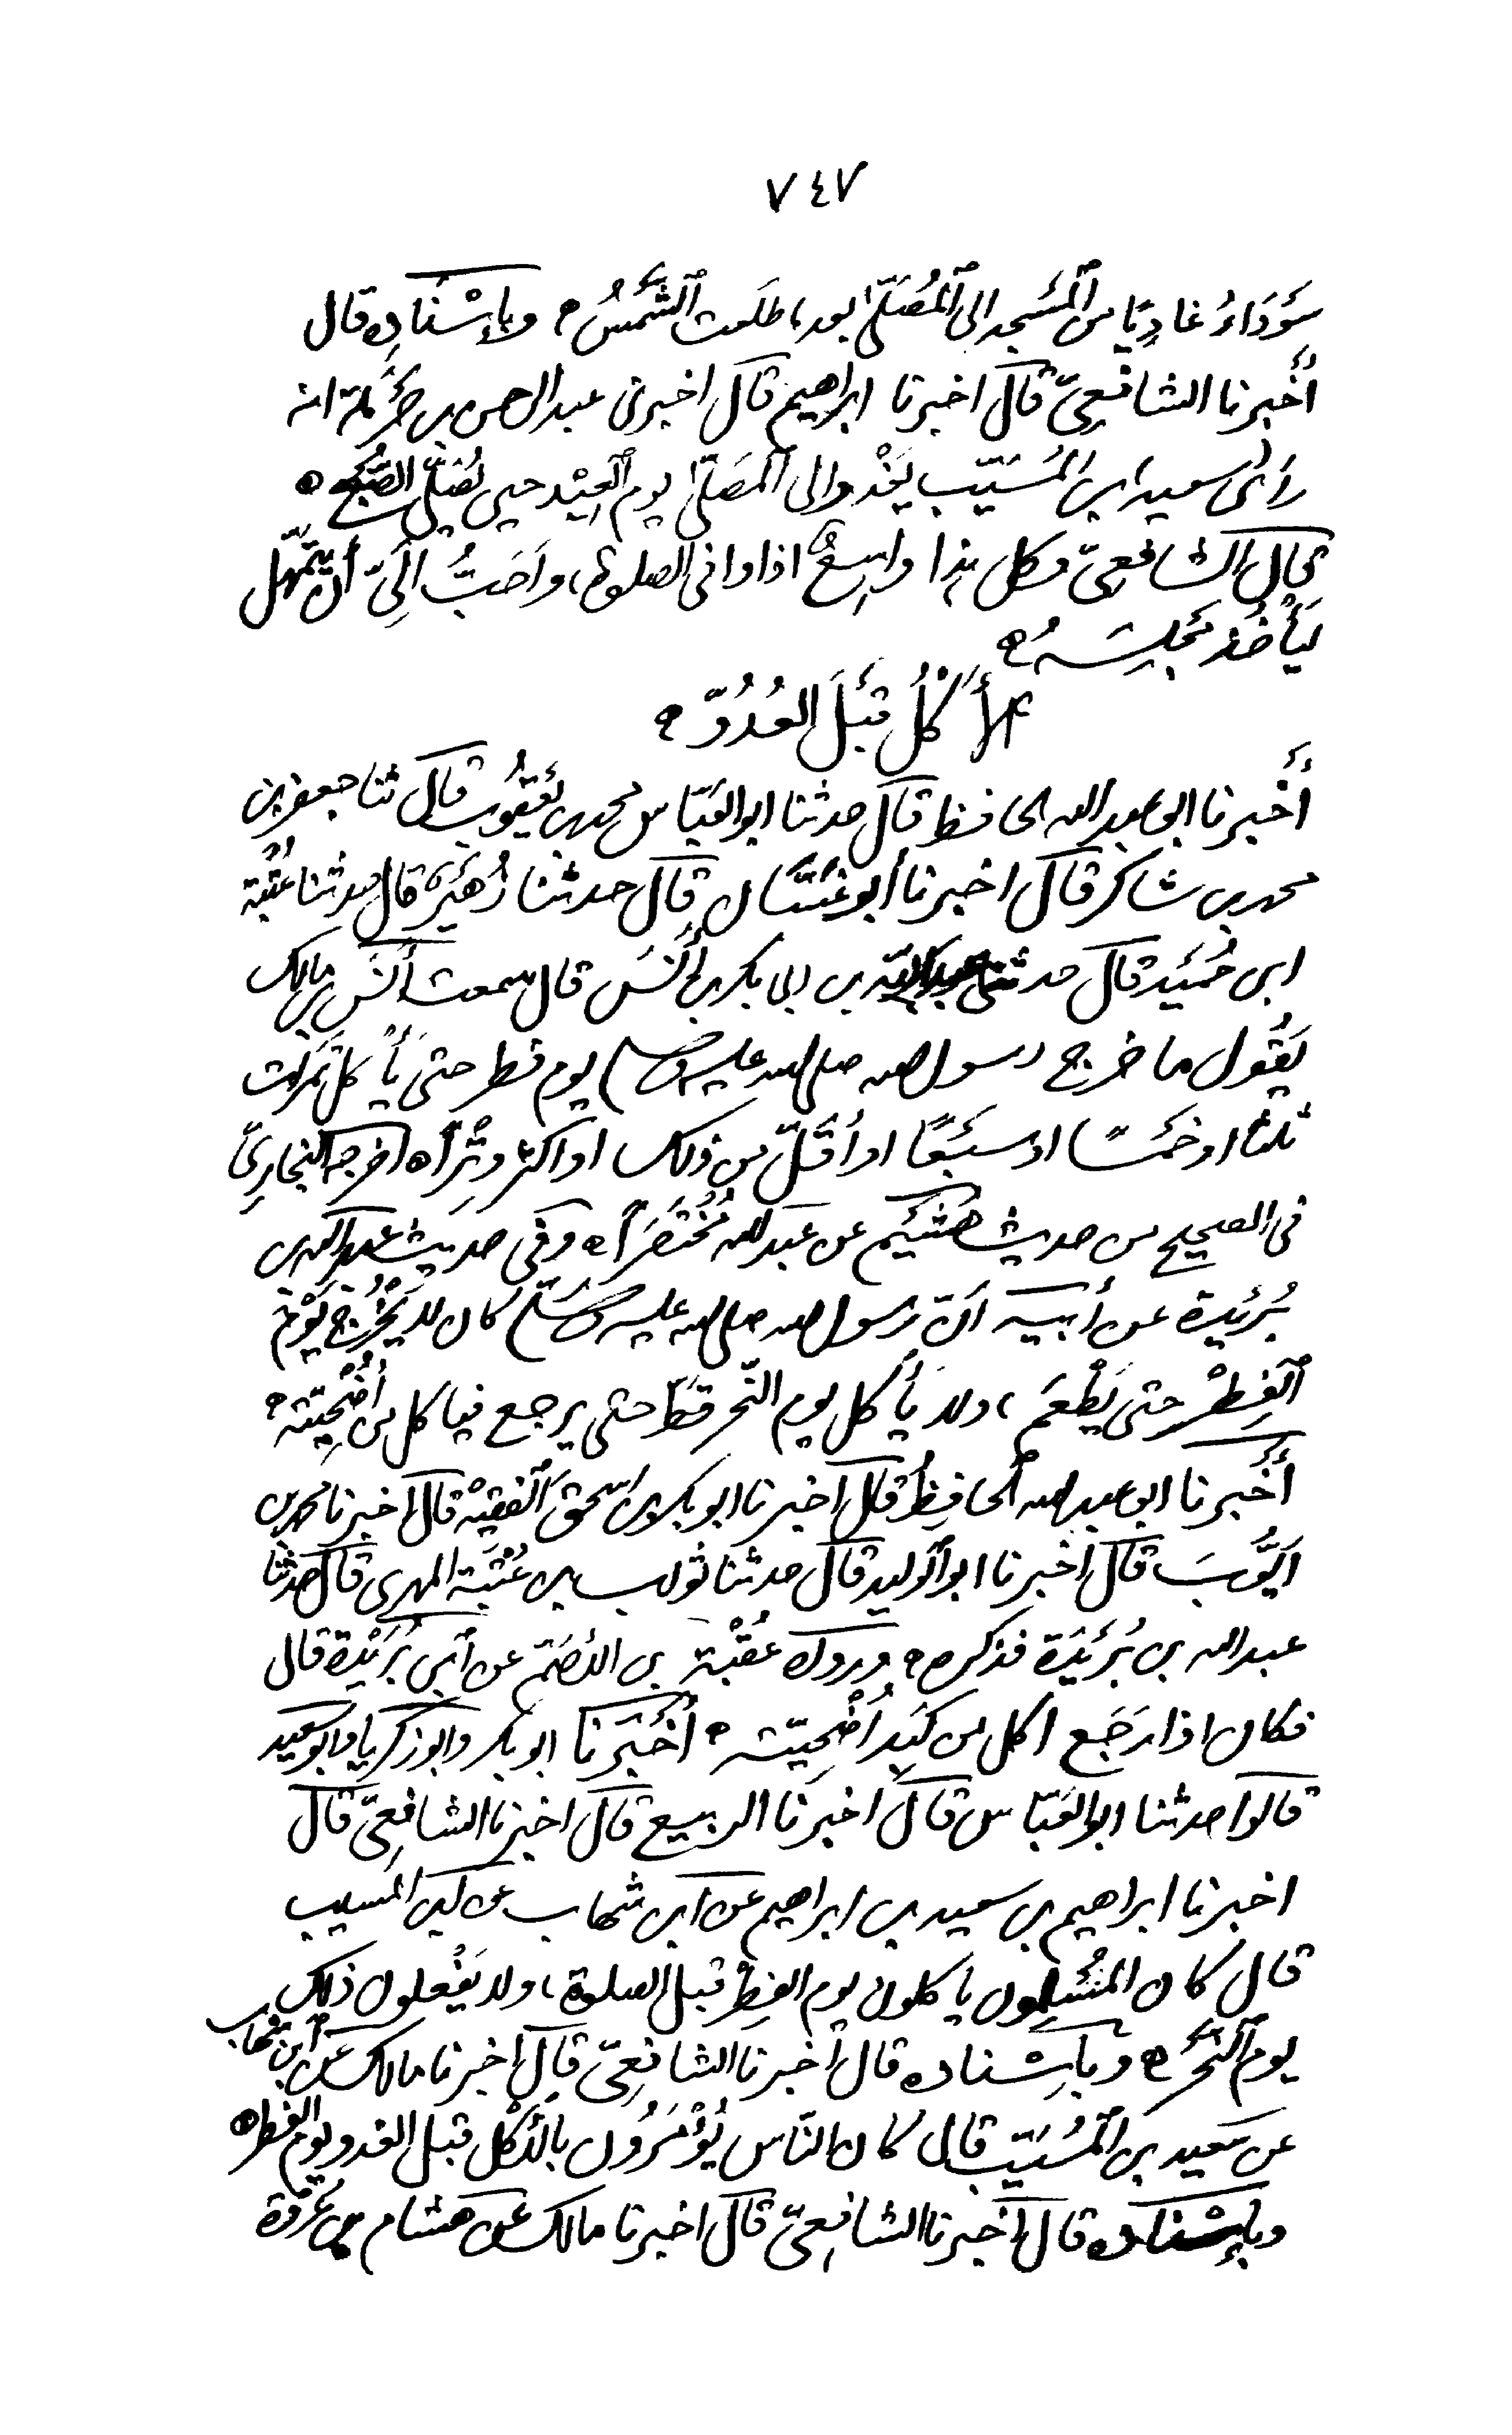 ٧٤٧
سَوْدَاءُ غاديًا من المَسْجد الى المُصَلّى بعد ما طلَعت الشَّمْسُ ۵ وبإسْنَادِه قال
أخْبرنا الشافعىّ قال اخبرنا ابراهيم قال اخبرنى عبدالرحمن بن حَرْمَلة انه
رأى سعيد ابن المُسَيّب يَغْدوا الى المصَلّى يوم العِيْد حين يُصَلّى الصّبْح ۵
قال الشافعىّ وكل هذا واسِعٌ اذا وافى الصلوة، واَحَبُّ اِلَىّ أن يتمَهّل
ليَأْخُذ مَجْلِسَهُ ۵
الأَكْلُ قَبْلَ الغُدُوّ ۵
أَخْبرنا ابو عبد الله الحافظ قال حدثنا ابو العَبّاس محمد بن يَعْقُوب قال ثنا جعفر بن
محمد بن شاكر قال اخبرنا أبو غَسَّان قال حدثنا زُهَيْر قال حدثنا عُتْبة
ابن حُمَيْد قال حدثنى عبيد الله بن ابى بكر بن أَنَس قال سمعت أنَس بن مالك
يَقُول ما خرج رسول الله صلى الله عليه وسلم يوم فطر حتى يَأكل تَمَرات
ثلثا او خَمْسًا او سَبْعًا او أقَلّ من ذلك او اكثر وِتْرًا ۵ اخرجه البخارىّ
فى الصحيح من حديث هُشَيْم عن عبيد الله مُخْتَصَرًا ۵ وفى حديث عبد الله بن
بُرَيْدة عن أبيه أنّ رسول الله صلى الله عليه وسَلّم كان لا يَخْرُج يَوْم
الفِطْر حتى يَطْعَم، ولا يَأكل يوم النّحر قَطّ حتى يرجع فيأكل من أُضْحِيته ۵
أخْبرنا ابو عبد الله الحافِظُ قال اخبرنا ابو بكر بن اسحق الفقيْه قال اخبرنا محمد بن
اَيُّوبَ قال أخْبرنا ابو الوليد قال حدثنا ثواب بن عُتْبَة المهرى قال حدثنا
عبد الله بن بُرَيْدَة فذكره ۵ ورواه عُقْبَة بن الأصَمّ عن ابن بُرَيْدة قال
فكان اذا رَجَع اكل من كَبِد اُضْحِيّته ۵ أخْبَرنا ابو بكر وابو زكريا وابو سعيد
قالوا حدثنا ابو العَبّاس قال اخبرنا الربيع قال اخبرنا الشافِعىّ قال
اخبرنا ابراهيم بن سعيد بن ابراهيم عن ابن شهاب عن ابن المسيب
قال كان المُسْلِمون ياكلون يوم الفِطْر قبل الصلوة، ولا يَفْعلون ذلك
يوم النّحْر ۵ وبإسْناده قال أخبرنا الشافِعىّ قال اخبرنا مالك عن ابن شهاب
عن سَعِيد بن المُسَيّب قال كان النّاس يُؤْمَرُون بالأكْل قبل الغدو يوم الفطر ۵
وبإسْناده قال أخبرنا الشافِعىّ قال اخبرنا مالك عن هشام بن عُرْوة